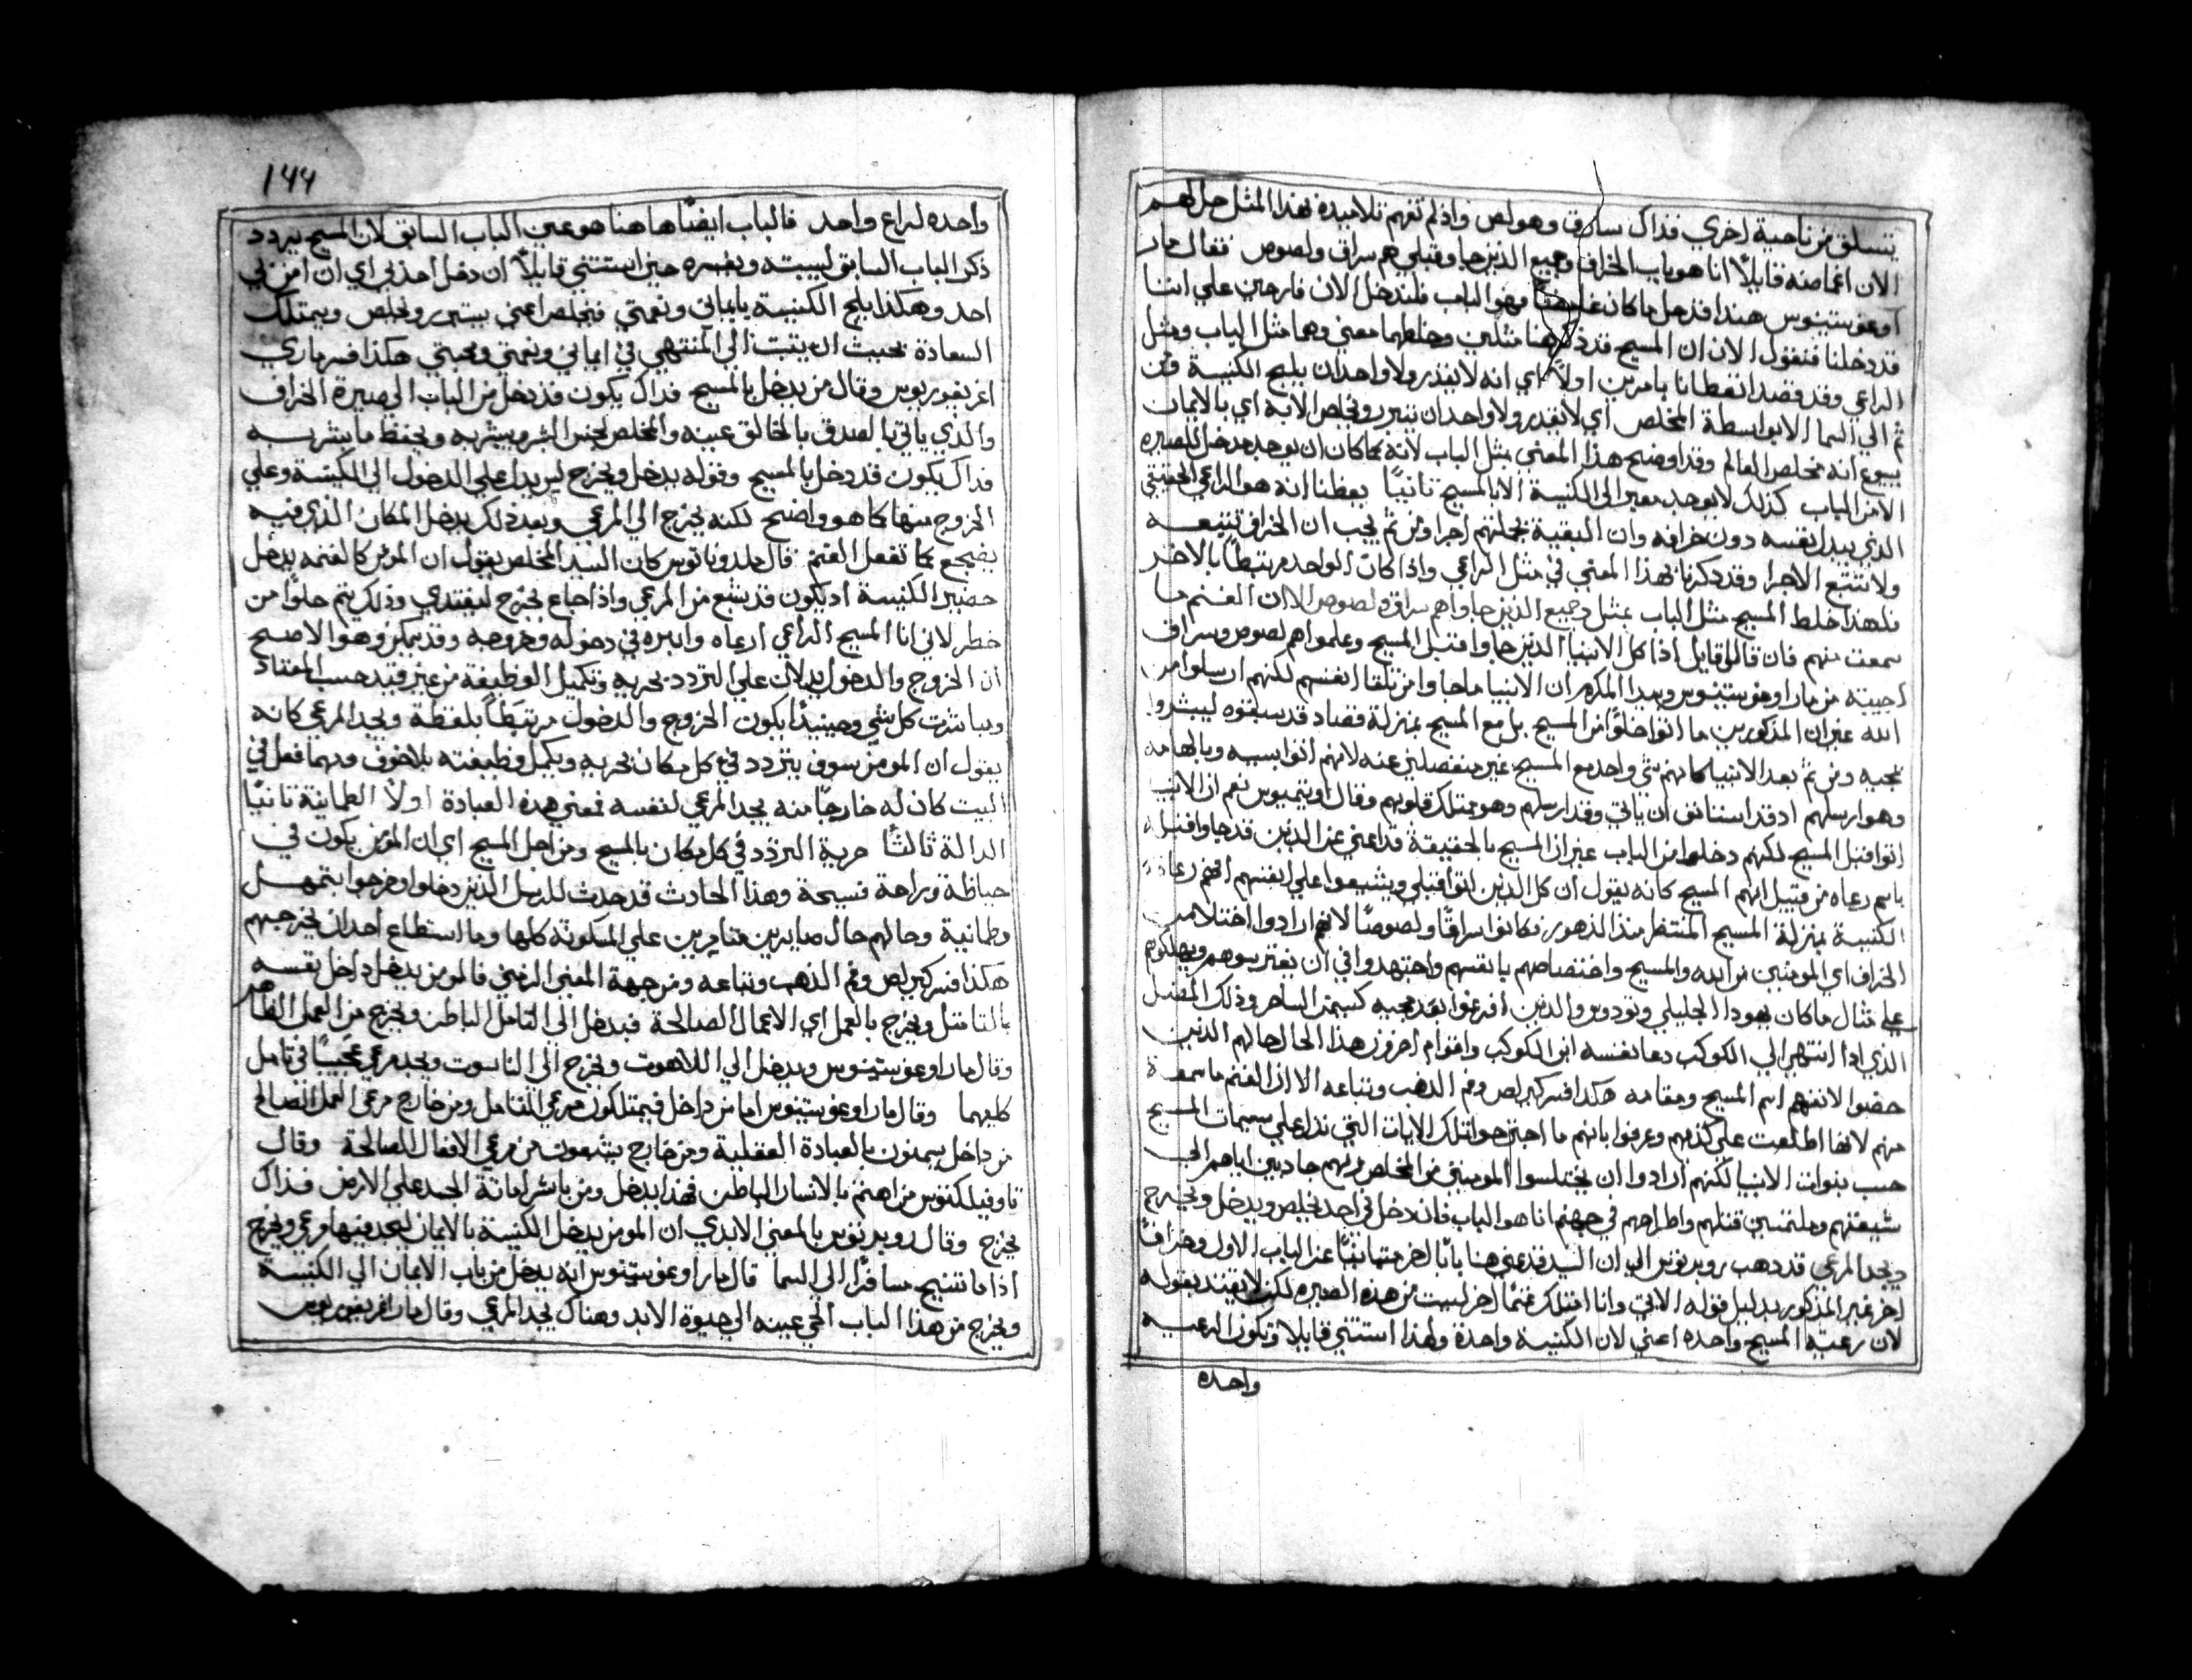 يتسلق من ناحية اخري فذاك سارق وهو لص واذ لم تفهم تلاميذه هذا المثل حل لهم
الان اغماضه قايلاً انا هو باب الخراف وجميع الذين جاو قبلي هم سراق ولصوص فقال مار
اوغوستينوس هنذا قد حل ما كان غامضاً فهو الباب فلندخل الان فارحين علي اننا
قد دخلنا فنقول الان ان المسيح قد ذكر هنا مثلين وخلطهما معني وهما مثل الباب ومثل
الراعي وقد قصد اتعظانا بامرين اولاً اي انه لا يقدر ولا واحد ان يلج الكنيسة ومن
ثم الي السما الا بواسطة المخلص اي لا يقدر ولا واحد ان يتبرر ويخلص الا به اي بالايمان
بيسوع انه مخلص العالم وقد اوضح هذا المعني بمثل الباب لانه كما كان ان يوجد مدخل للصيره
الا من الباب كذلك لا يوجد معبر الي الكنيسة الا بالمسيح ثانياً يعظنا انه هو الراعي الحقيقي
الذي يبذل نفسه دون خرافه وان البقية بجملتهم اجرا ومن ثم يجب ان الخراف تتبعه
ولا تتبع الاجرا وقد ذكرنا هذا المعني في مثل الراعي واذا كان الواحد مرتبطاً بالاخر
فلهذا خلط المسيح مثل الباب بمثل وجميع الذين جاوا هم سراق ولصوص الا ان الغنم ما
سمعت منهم فان قال قايل اذا كل الانبيا الذين جاوا قبل المسيح وعلموا هم لصوص وسراق
اجيبه من مار اوغوستينوس وبيدا المكرم ان الانبيا ما جاوا من تلقا انفسهم لكنهم ارسلوا من
الله غير ان المذكورين ما اتوا خلوًا من المسيح بل مع المسيح بمنزلة قصاد قد سبقوه ليبشروا
بمجيه ومن ثم يعد الانبيا كانهم شي واحد مع المسيح غير منفصلين عنه لانهم اتوا بسببه وبالهامه
وهو ارسلهم اذ قد استانق ان ياتي وقد ارسلهم وهو ممتلك قلوبهم وقال اوتيميوس نعم ان الانبيا
اتوا قبل المسيح لكنهم دخلوا من الباب غير ان المسيح بالحقيقة قد اعني عن الذين قد جاوا قبله
باسم رعاه من قبيل انهم المسيح كانه يقول ان كل الذين اتوا قبلي ويشيعوا علي انفسهم انهم رعاة
الكنيسة بمنزلة المسيح المنتظر منذ الدهور فكانوا سراقاً ولصوصاً لانهم ارادوا اختلاس
الخراف اي المومنين من الله والمسيح واختصاصهم بانفسهم واجتهدوا في ان يفترسوهم ويهلكوهم
علي مثال ما كان يهودا الجليلي وتودوس والذين افرغوا بعد مجيه كسيمن الساحر وذلك المضل
الذي اذا انتهي الي الكوكب دعا نفسه ابن الكوكب واقوام اخر من هذا الحال حالهم الذين
خصوا لانفسهم اسم المسيح ومقامه هكذا فسر كيرلص وفم الذهب وتباعه الا ان الغنم ما سمعة
منهم لانها اطلعت علي كذبهم وعرفوا بانهم ما اجترحوا تلك الايات التي تدل علي سمات المسيح
حسب نبوات الانبيا لكنهم ارادوا ان يختلسوا المومنين من المخلص ربهم جاذبين اياهم الي
شيعتهم وملتمسين قتلهم واطراحهم في جهنم انا هو الباب فان دخل في احد يخلص ويدخل ويخرج
ويجد المرعي قد دهب روبرتوس الي ان السيد قد عني هنا باباً اخر متباينًا عن الباب الاول وخرافاً
اخر غير المذكور بدليل قوله الاتي وانا امتلك غنماً اخر ليست من هذه الصيره لكن لا يفند بقوله
لان رعية المسيح واحده اعني لان الكنيسة واحدة ولهذا استتني قايلا وتكون الرعيه
واحده
١٤٤
واحده لراع واحد فالباب ايضاً هاهنا هو عين الباب السابق لان المسيح يردد
ذكر الباب السابق ليثبته ويفسره حين استتني قايلاً ان دخل احد بي اي ان امن بي
احد وهكذا يلج الكنيسة بايماني ونعمتي فيخلص اعني يتبرر ويخلص ويمتلك
السعادة بحيث ان يثبت الي المنتهي في ايماني ونعمتي ومحبتي هكذا فسر ماري
اغريغوريوس وقال من يدخل بالمسيح فداك يكون قد دخل من الباب الي صيرة الخراف
والذي ياتي بالصدق بالخالق عينه والمخلص لجنس البشر ويبشر به ويحفظ ما يبشر به
فداك يكون قد دخل بالمسيح وقوله يدخل ويخرج ليس يدل علي الدخول الي الكنيسة وعلي
الخروج منها كما هو واضح لكنه يخرج الي المرعي وبعد ذلك يدخل المكان الذي فيه
يضجع كما تفعل الغنم قال ملدوناتوس كان السيد المخلص يقول ان المومن كالغنمه يدخل
حضير الكنيسة اذ يكون قد شبع من المرعي واذا جاع يخرج ليغتدي وذلك يتم خلوًا من
خطر لاني انا المسيح الراعي ارعاه وادبره في دخوله وخروجه وقد يمكن وهو الاصح
ان الخروج والدخول يدلان علي التردد بحريه وتكميل الوظيفة من غير قيد حسب المعتاد
ومباشرت كل شي وحينيدًا يكون الخروج والدخول مرتبطاً بلفظة ويجد المرعي كانه
يقول ان المومن سوف يتردد في كل مكان بحريه ويكمل وظيفته بلا خوف ومهما فعل في
البيت كان له خارجاً منه يجد المرعي لنفسه فمعني هذه العبادة اولاً الطمانينة ثانياً
الدالة ثالثاً حرية التردد في كل مكان بالمسيح ومن اجل المسيح اي ان المومن يكون في
حياطة وبراحة فسيحة وهذا الحادث قد حدث للرسل الذين دخلوا وخرجوا بتمهل
وطمانية وحالهم حال صايرين متامرين علي المسكونة كلها وما استطاع احد ان يخرجهم
هكذا فسر كيرلص وفم الذهب وتباعه ومن جهة المعني الرمزي فالمومن يدخل داخل نفسه
بالتامل ويخرج بالعمل اي الاعمال الصالحة فيدخل الي التامل الباطن ويخرج من العمل الظاهر
وقال مار اوغوستينوس ويدخل الي اللاهوت ويخرج الي الناسوت ويجد مرعي عجيباً في تامل
كليهما وقال مار اوغوستينوس اما من داخل فيمتلكون مرعي التامل ومن خارج مرعي العمل الصالح
من داخل يسمنون بالعبادة العقلية ومن خارج يشبعون من مرعي الافعال الصالحة وقال
تاوفيلكتوس من اهتم بالانسان الباطن فهذا يدخل ومن باشر اماتة الجسد علي الارض فذاك
يخرج وقال روبرتوس بالمعني الابدي ان المومن يدخل الكنيسة بالايمان ليجد فيها مرعي ويخرج
اذا ما تنيح مسافرًا الي السما قال مار اوغوستينوس انه يدخل من باب الايمان الي الكنيسة
ويخرج من هذا الباب الحي عينه الي حيوة الابد وهناك يجد المرعي وقال مار اغريغوريوس